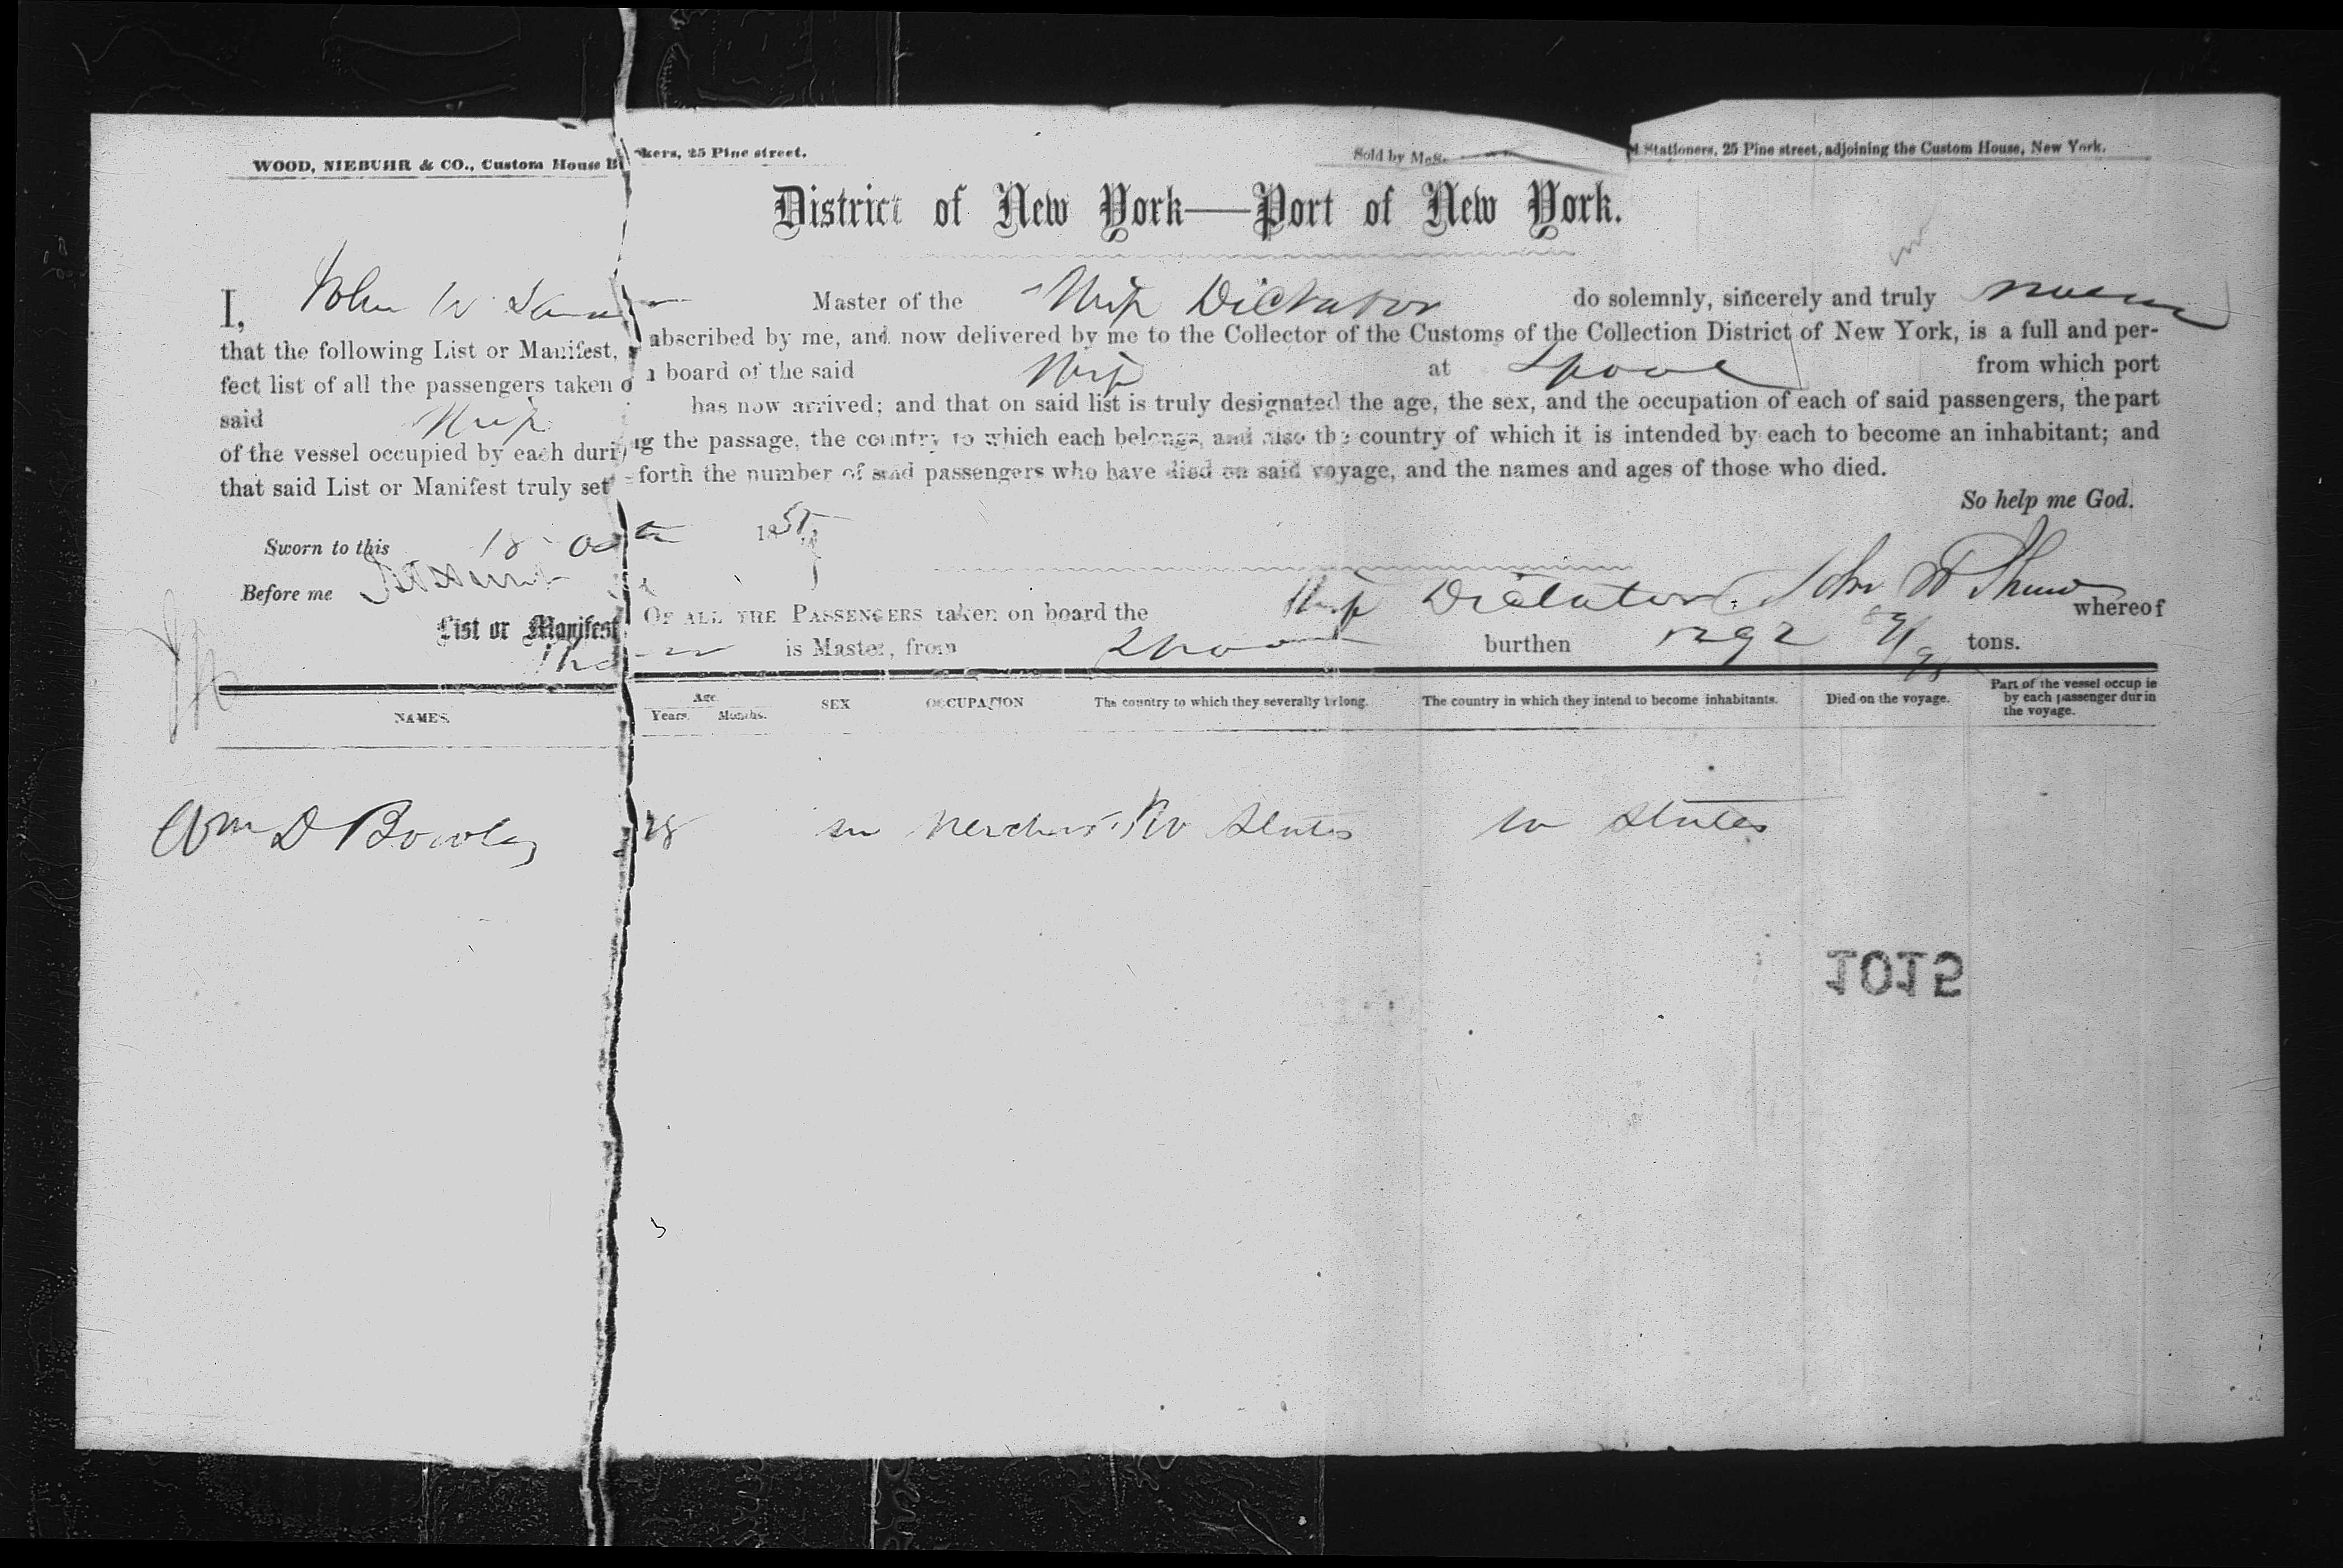 WOOD, NIEBUHR & CO., Custom House Brokers, 25 Pine street. Sold by McS. d Stationers, 25 Pine street, adjoining the Custom House, New York.
District of New York—Port of New York.
I, John W Master of the Ship Dictator do solemnly, sincerely and truly swear
that the following List or Manifest, subscribed by me, and now delivered by me to the Collector of the Customs of the Collection District of New York, is a full and per-
fect list of all the passengers taken on board of the said Ship at Lpool from which port
said Ship has now arrived; and that on said list is truly designated the age, the sex, and the occupation of each of said passengers, the part
of the vessel occupied by each during the passage, the country to which each belongs, and also the country of which it is intended by each to become an inhabitant; and
that said List or Manifest truly sets forth the number of said passengers who have died on said voyage, and the names and ages of those who died.
So help me God.
Sworn to this 18 Octr 185
Before me
List or Manifest OF ALL THE PASSENGERS taken on board the Ship Dictator John W whereof
is Master, from Lpool burthen 1292 tons.
NAMES. Age Years. Months. SEX OCCUPATION The country to which they severally belong. The country in which they intend to become inhabitants. Died on the voyage. Part of the vessel occupie by each passenger durin the voyage.
Wm D Bowley 28 m Merchant U States U States
1015